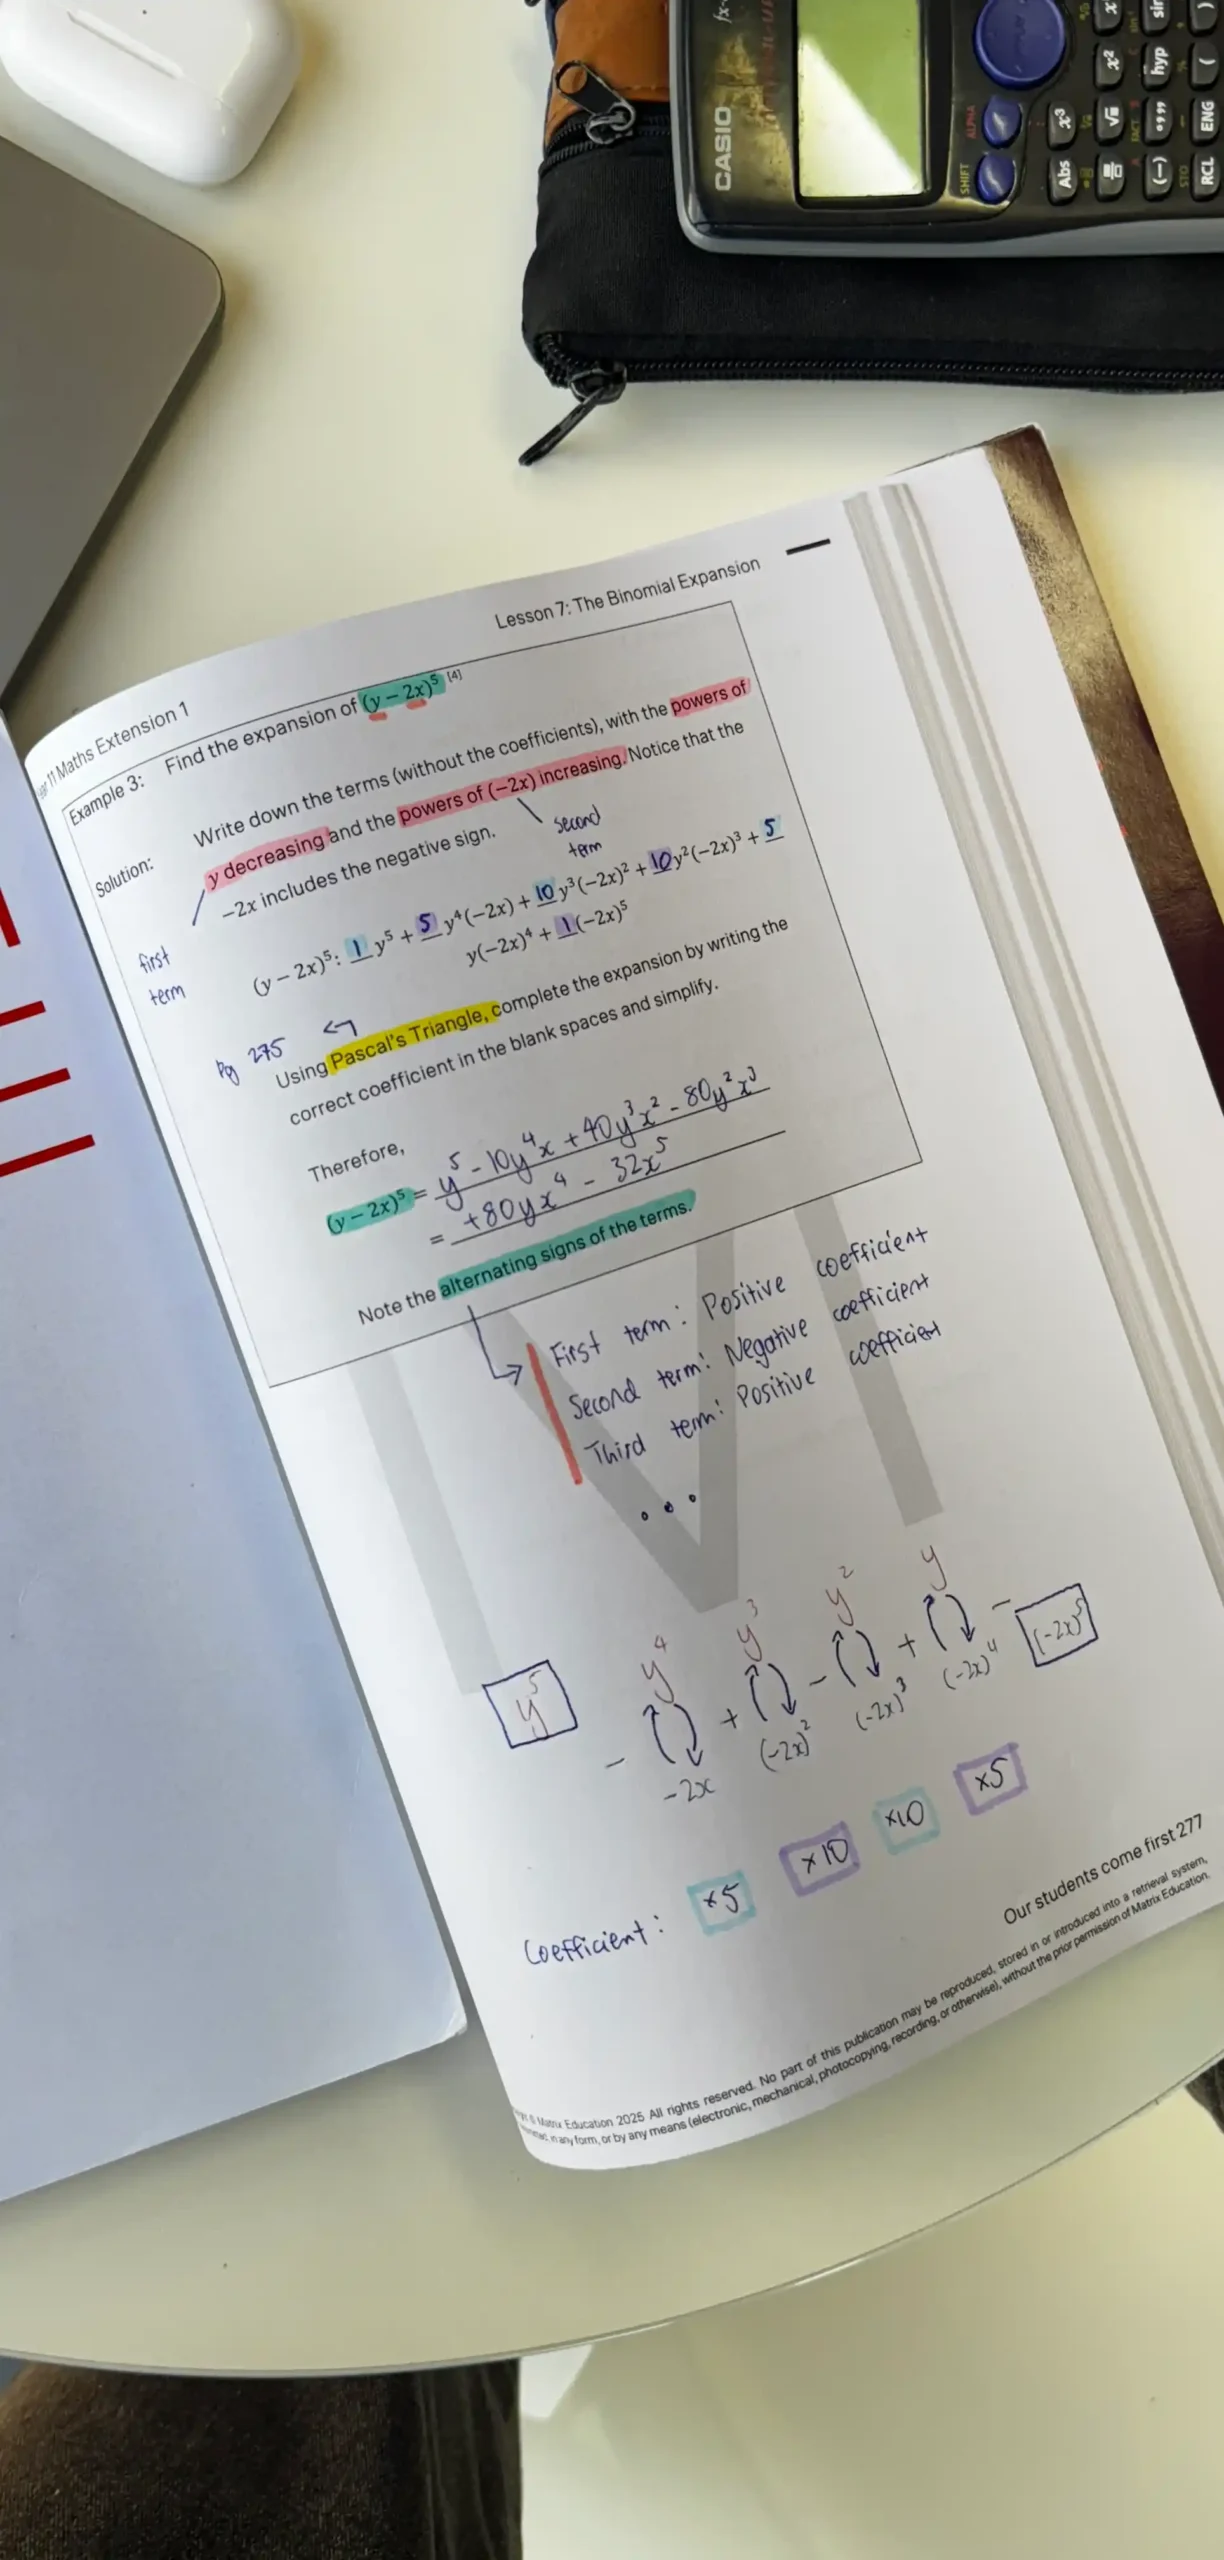 CASIO
fx-
SHIFT
ALPHA
Abs
x³
x²
√
hyp
sin
(−)
RCL
ENG
(
)
STO
FACT
11 Maths Extension 1
Lesson 7: The Binomial Expansion
Example 3: Find the expansion of (y − 2x)⁵ [4]
Solution: Write down the terms (without the coefficients), with the powers of
y decreasing and the powers of (−2x) increasing. Notice that the
−2x includes the negative sign.
second
term
first
term
(y − 2x)⁵: 1 y⁵ + 5 y⁴(−2x) + 10 y³(−2x)² + 10 y²(−2x)³ + 5
y(−2x)⁴ + 1 (−2x)⁵
Pg 275
Using Pascal's Triangle, complete the expansion by writing the
correct coefficient in the blank spaces and simplify.
Therefore,
(y − 2x)⁵ = y⁵ - 10y⁴x + 40y³x² - 80y²x³
= +80yx⁴ - 32x⁵
Note the alternating signs of the terms.
First term: Positive coefficient
Second term: Negative coefficient
Third term: Positive coefficient
...
y⁴ y³ y² y
y⁵ - + - + - (-2x)⁵
-2x (-2x)² (-2x)³ (-2x)⁴
Coefficient: ×5 ×10 ×10 ×5
Our students come first 277
© Matrix Education 2025 All rights reserved. No part of this publication may be reproduced, stored in or introduced into a retrieval system,
in any form, or by any means (electronic, mechanical, photocopying, recording, or otherwise), without the prior permission of Matrix Education.